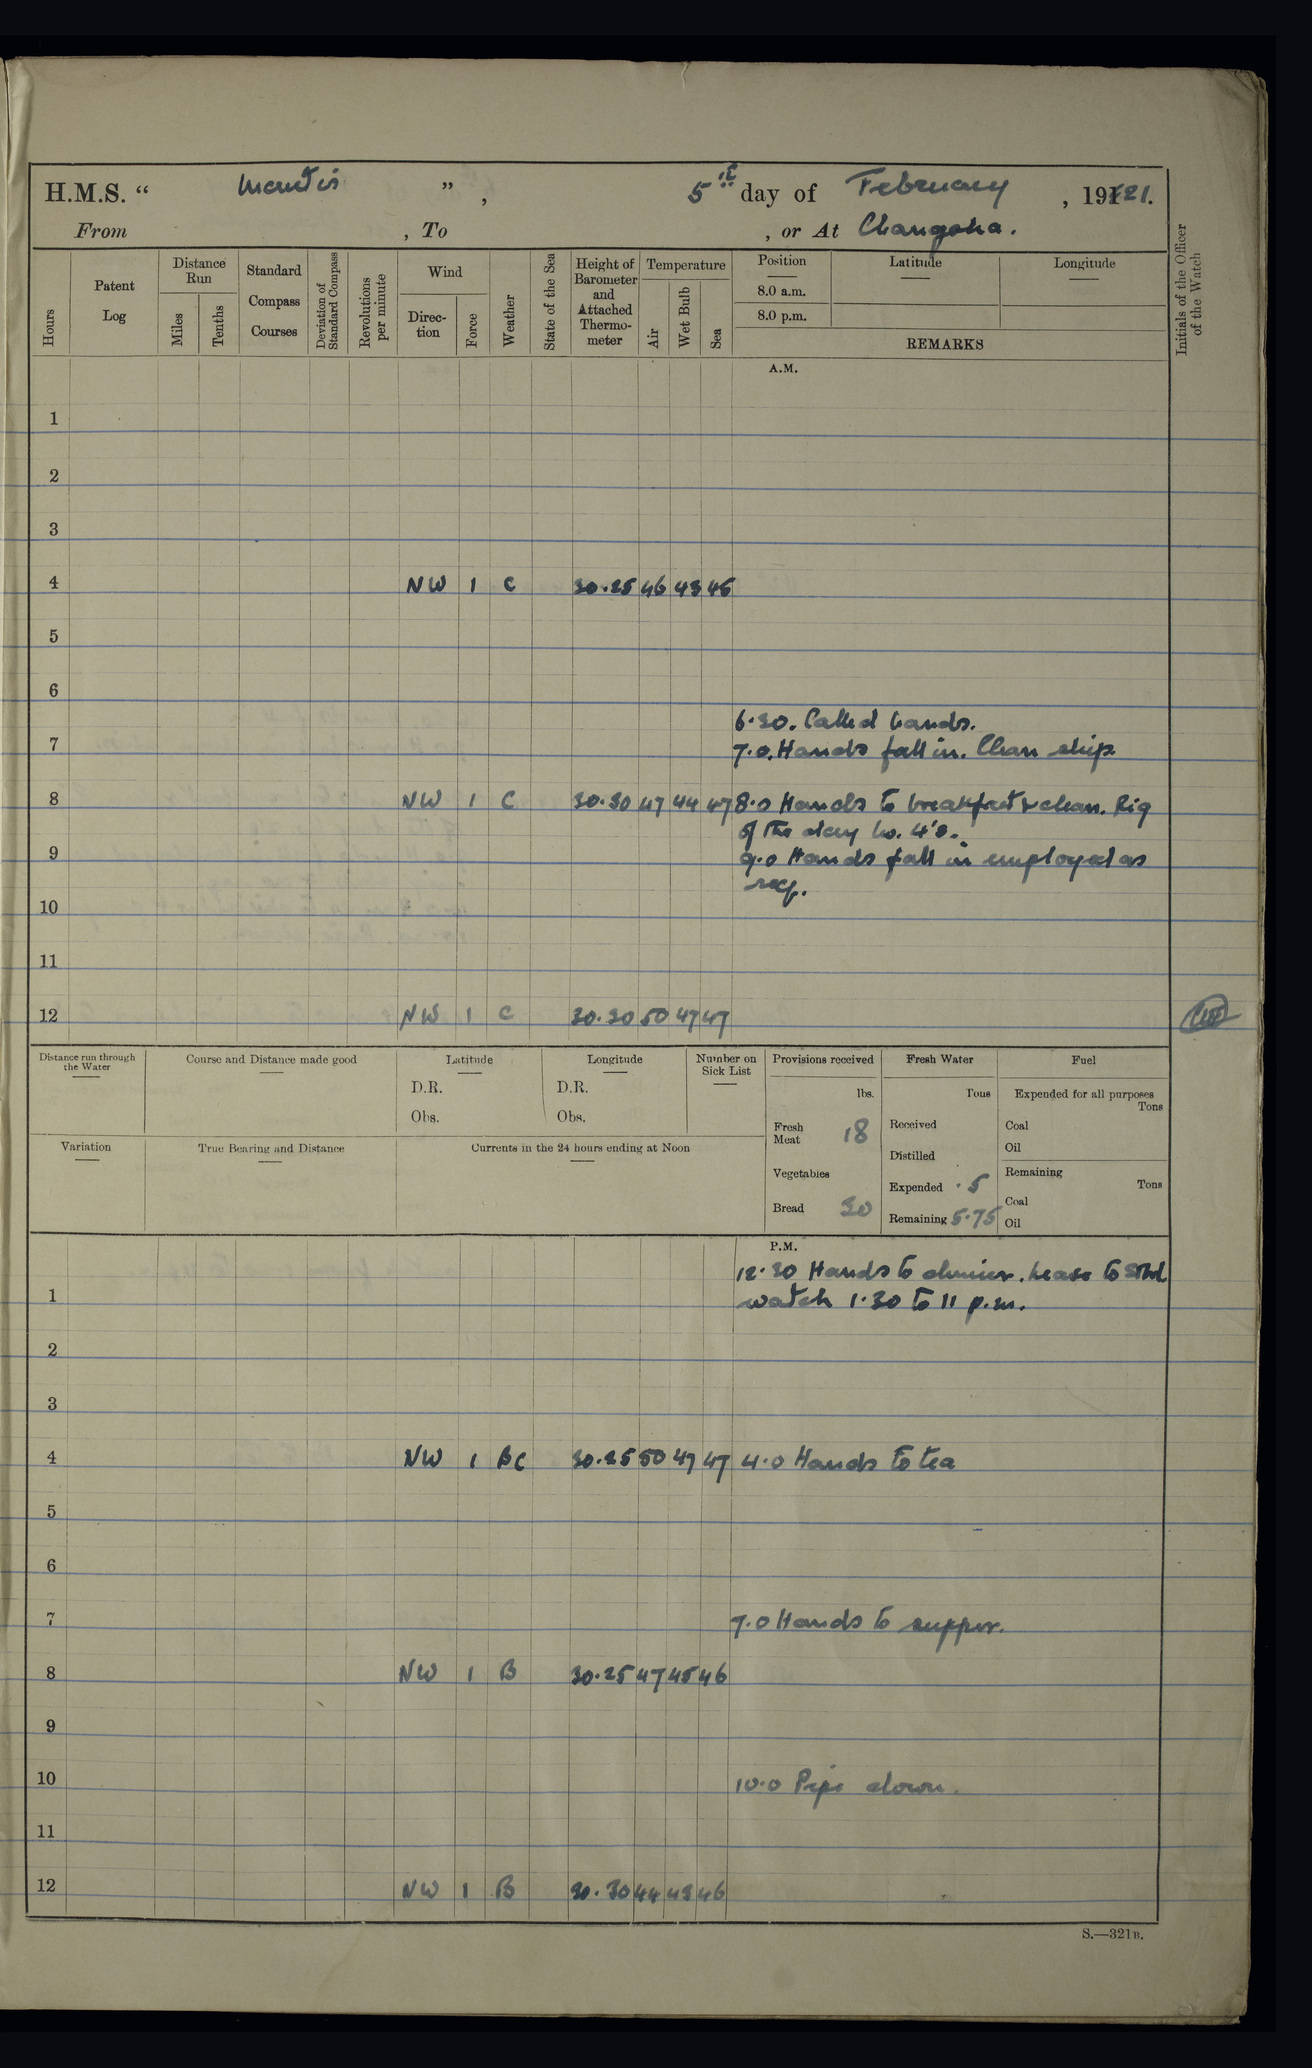 H.M.S. “ Mantis ” , 5th day of February , 1921.
From , To , or At Changsha.
Hours
Patent Log
Distance Run
Miles
Tenths
Standard Compass Courses
Deviation of Standard Compass
Revolutions per minute
Wind
Direc-tion
Force
Weather
State of the Sea
Height of Barometer and Attached Thermo-meter
Temperature
Air
Wet Bulb
Sea
Position
8.0 a.m.
8.0 p.m.
Latitude
Longitude
REMARKS
Initials of the Officer of the Watch
A.M.
1
2
3
4 NW 1 C 30.25 46 43 45
5
6
6.30. Called hands.
7 7.0. Hands fall in. Clean ship
8 NW 1 C 30.30 47 44 47 8.0 Hands to breakfast & clean. Rig
of the day No. 4's.
9 9.0 Hands fall in employed as
req.
10
11
12 NW 1 C 30.30 50 47 47
Distance run through the Water
Course and Distance made good
Latitude
D.R.
Obs.
Longitude
D.R.
Obs.
Number on Sick List
Provisions received
lbs.
Fresh Meat 18
Vegetables
Bread 30
Fresh Water
Tons
Received
Distilled
Expended .5
Remaining 5.75
Fuel
Expended for all purposes
Tons
Coal
Oil
Remaining
Tons
Coal
Oil
Variation
True Bearing and Distance
Currents in the 24 hours ending at Noon
P.M.
12.30 Hands to dinner. Leave to Stbd
1 watch 1.30 to 11 p.m.
2
3
4 NW 1 BC 30.25 50 47 47 4.0 Hands to tea
5
6
7 7.0 Hands to supper.
8 NW 1 B 30.25 47 45 46
9
10 10.0 Pipe down.
11
12 NW 1 B 30.30 44 43 46
S.—321B.